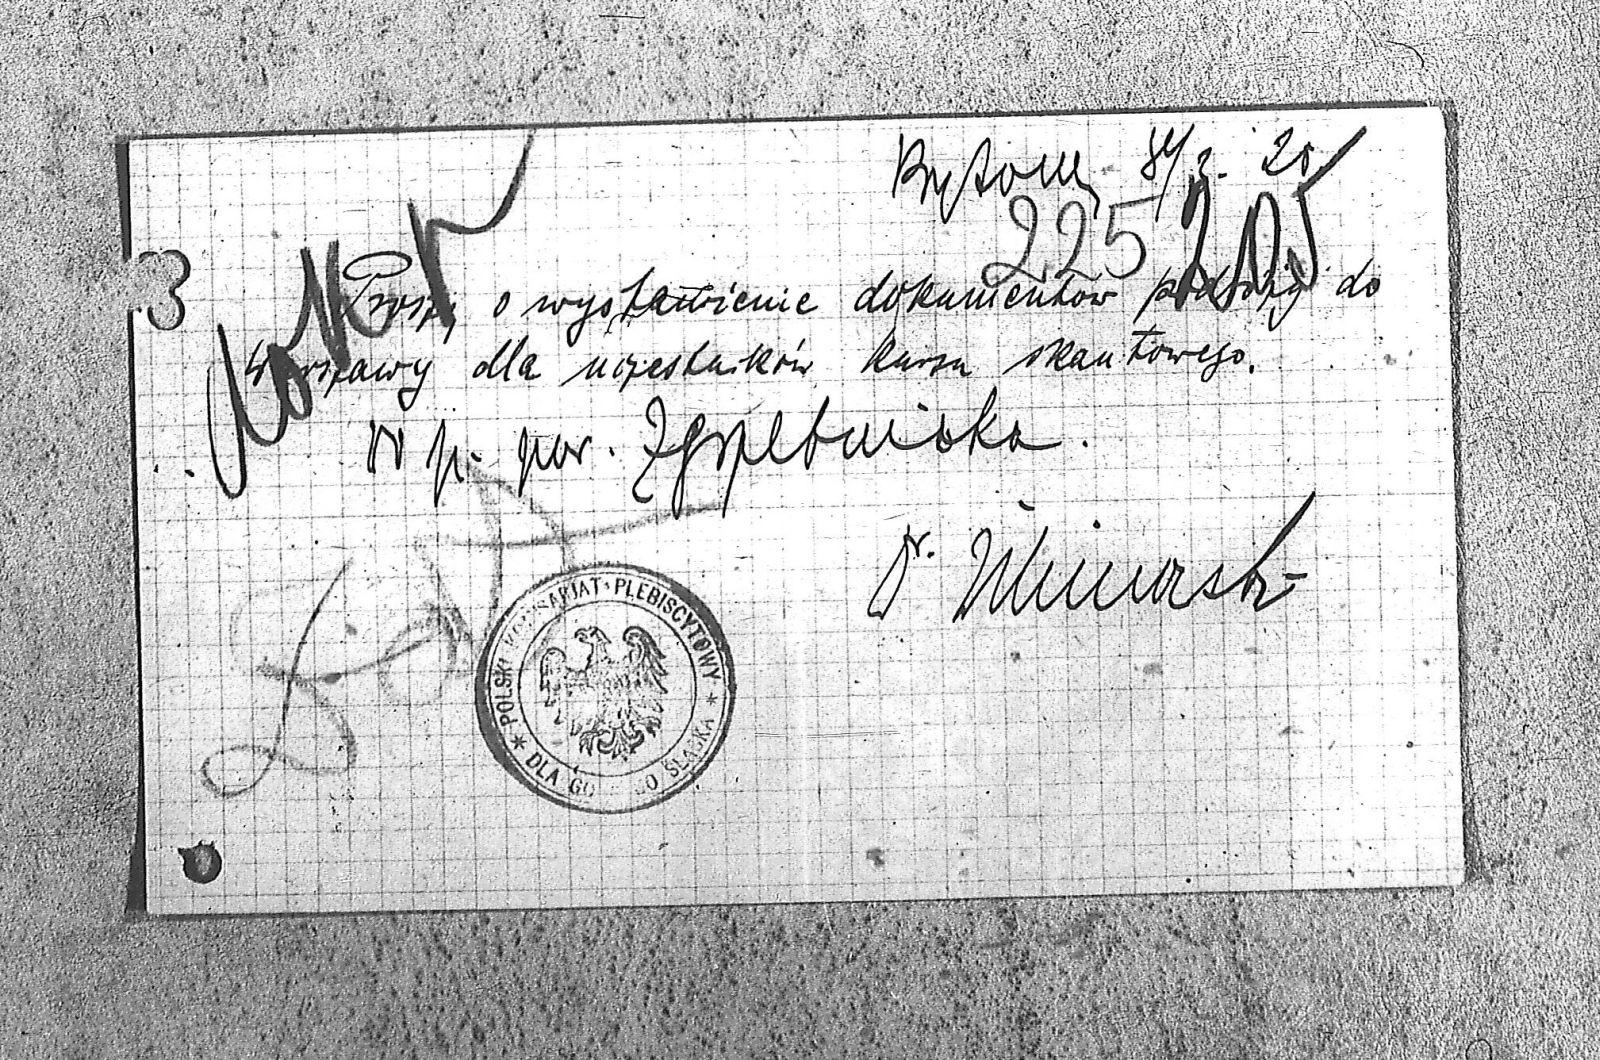 Bytom 20
225
3
Proszę o wystawienie dokumentów podróży do
Warszawy dla uczestników kursu skautowego.
W p. por. Zgrzebnioka.
Dr.
POLSKI KOMISARJAT PLEBISCYTOWY
DLA GO O ŚLĄSKA